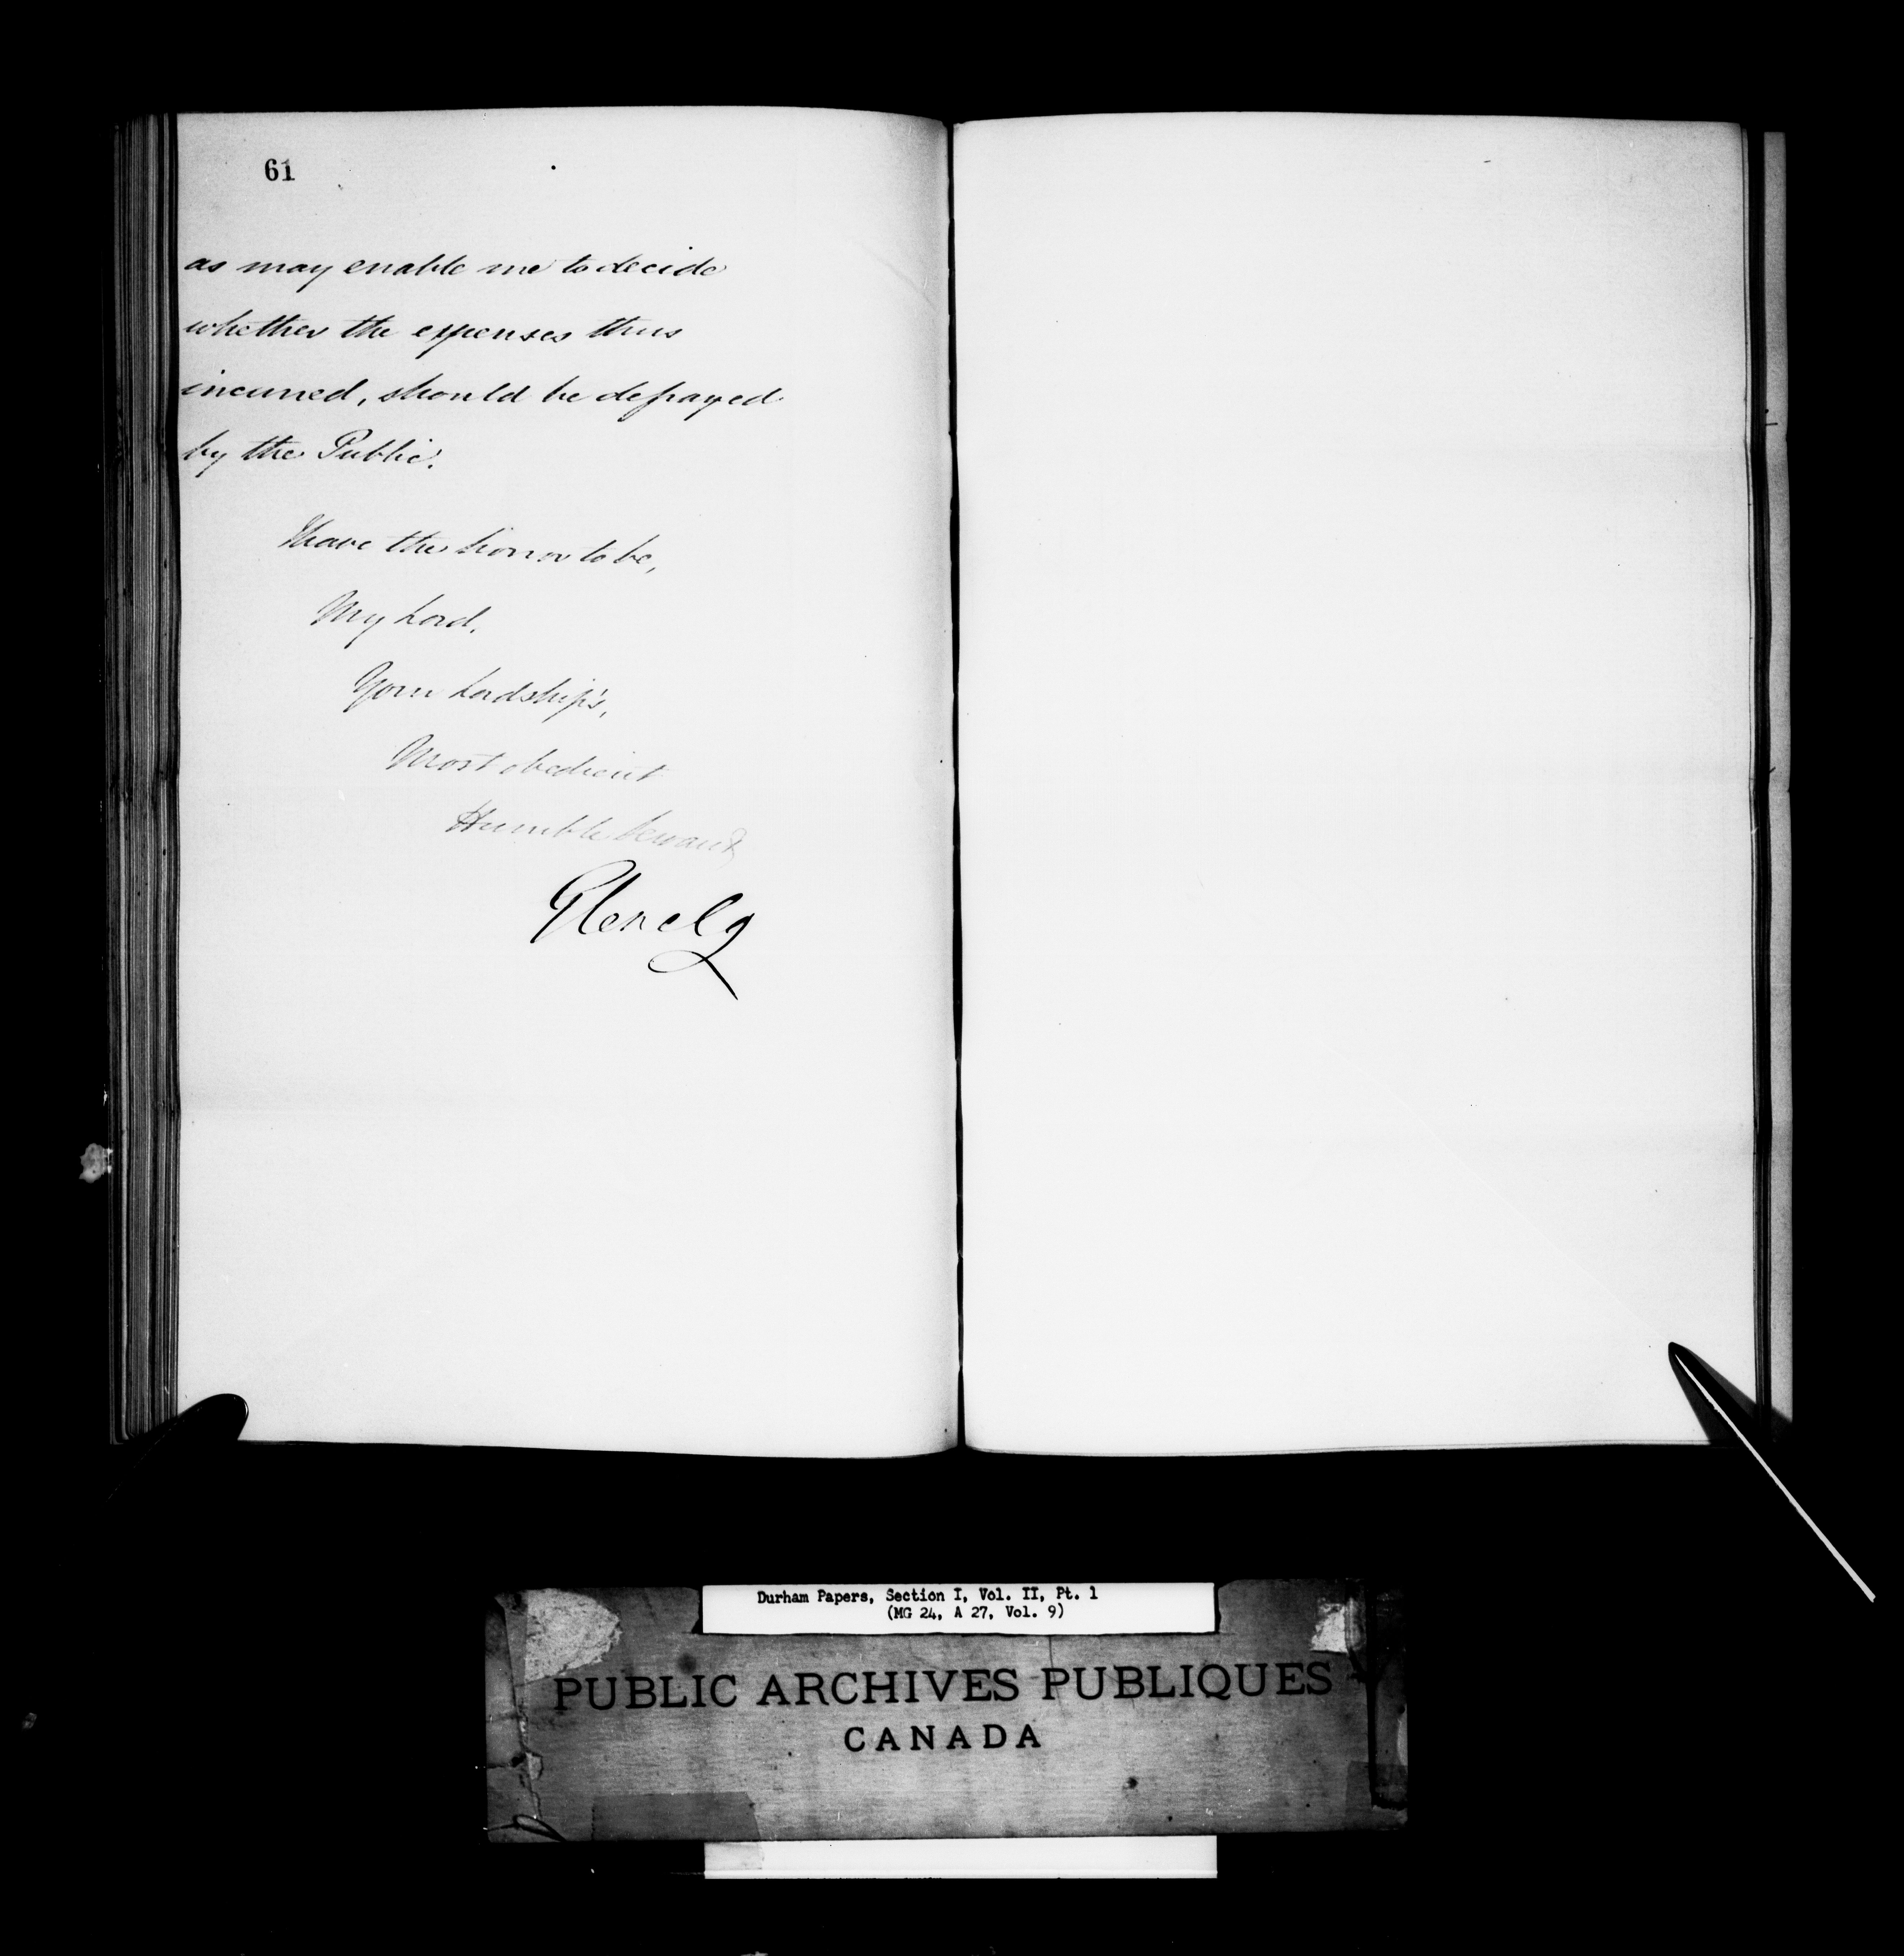 61
as may enable me to decide
whether the expenses thus
incurred, should be defrayed
by the Public.
I have the honor to be,
My Lord,
Your Lordship's,
Most obedient
Humble Servant,
Glenelg
Durham Papers, Section I, Vol. II, Pt. 1
(MG 24, A 27, Vol. 9)
PUBLIC ARCHIVES PUBLIQUES
CANADA